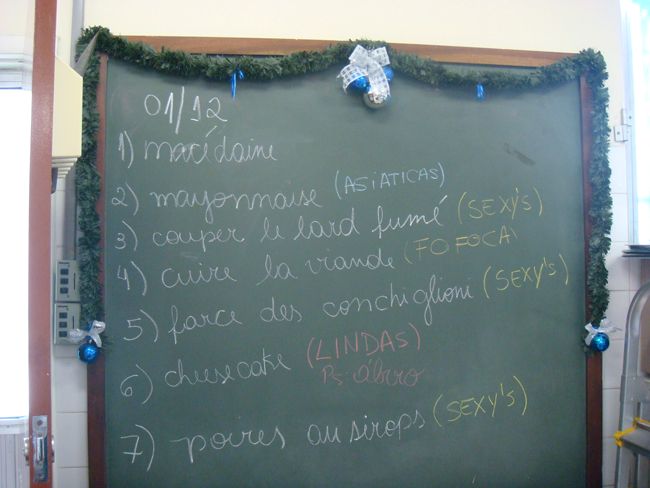 01/12
1) macédoine
2) mayonnaise (ASIATICAS)
3) couper le lard fumé (SEXY'S)
4) cuire la viande (FOFOCA)
5) farce des conchiglioni (SEXY'S)
6) cheesecake (LINDAS)
Ps:
7) poires au sirops (SEXY'S)